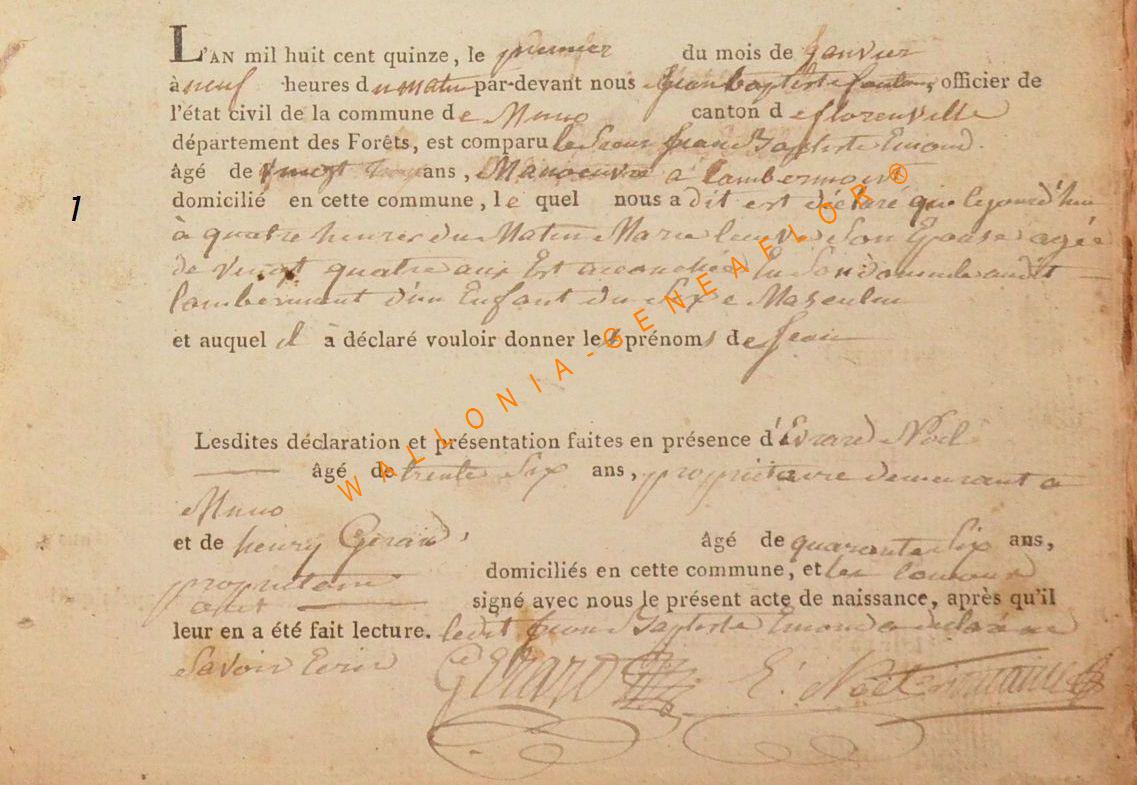 L'AN mil huit cent quinze, le premier du mois de Janvier
à neuf heures du matin par-devant nous Jean baptiste, officier de
l'état civil de la commune de Muno canton de florenville
département des Forêts, est comparu le Sieur Jean Baptiste Emond
âgé de vingt ans, Manoeuvre à lambermont
1
domicilié en cette commune, le quel nous a dit est déclaré que cejourd'hui
à quatre heures du Matin Marie Son Epouse agée
de vingt quatre ans Est accouchée En Son domicile audit
lambermont d'un Enfant du Sexe Masculin
et auquel il a déclaré vouloir donner les prénoms de Jean
Lesdites déclaration et présentation faites en présence d'Evrard Noël
âgé de trente Six ans, propriétaire demeurant a
Muno
et de henry Gérard, âgé de quarante Six ans,
propriétaire domiciliés en cette commune, et les temoins
ont signé avec nous le présent acte de naissance, après qu'il
leur en a été fait lecture. ledit Jean Baptiste Emond a déclaré ne
Savoir Ecrire
GERARD E. Noël
WALLONIA-GENEAFLOR®